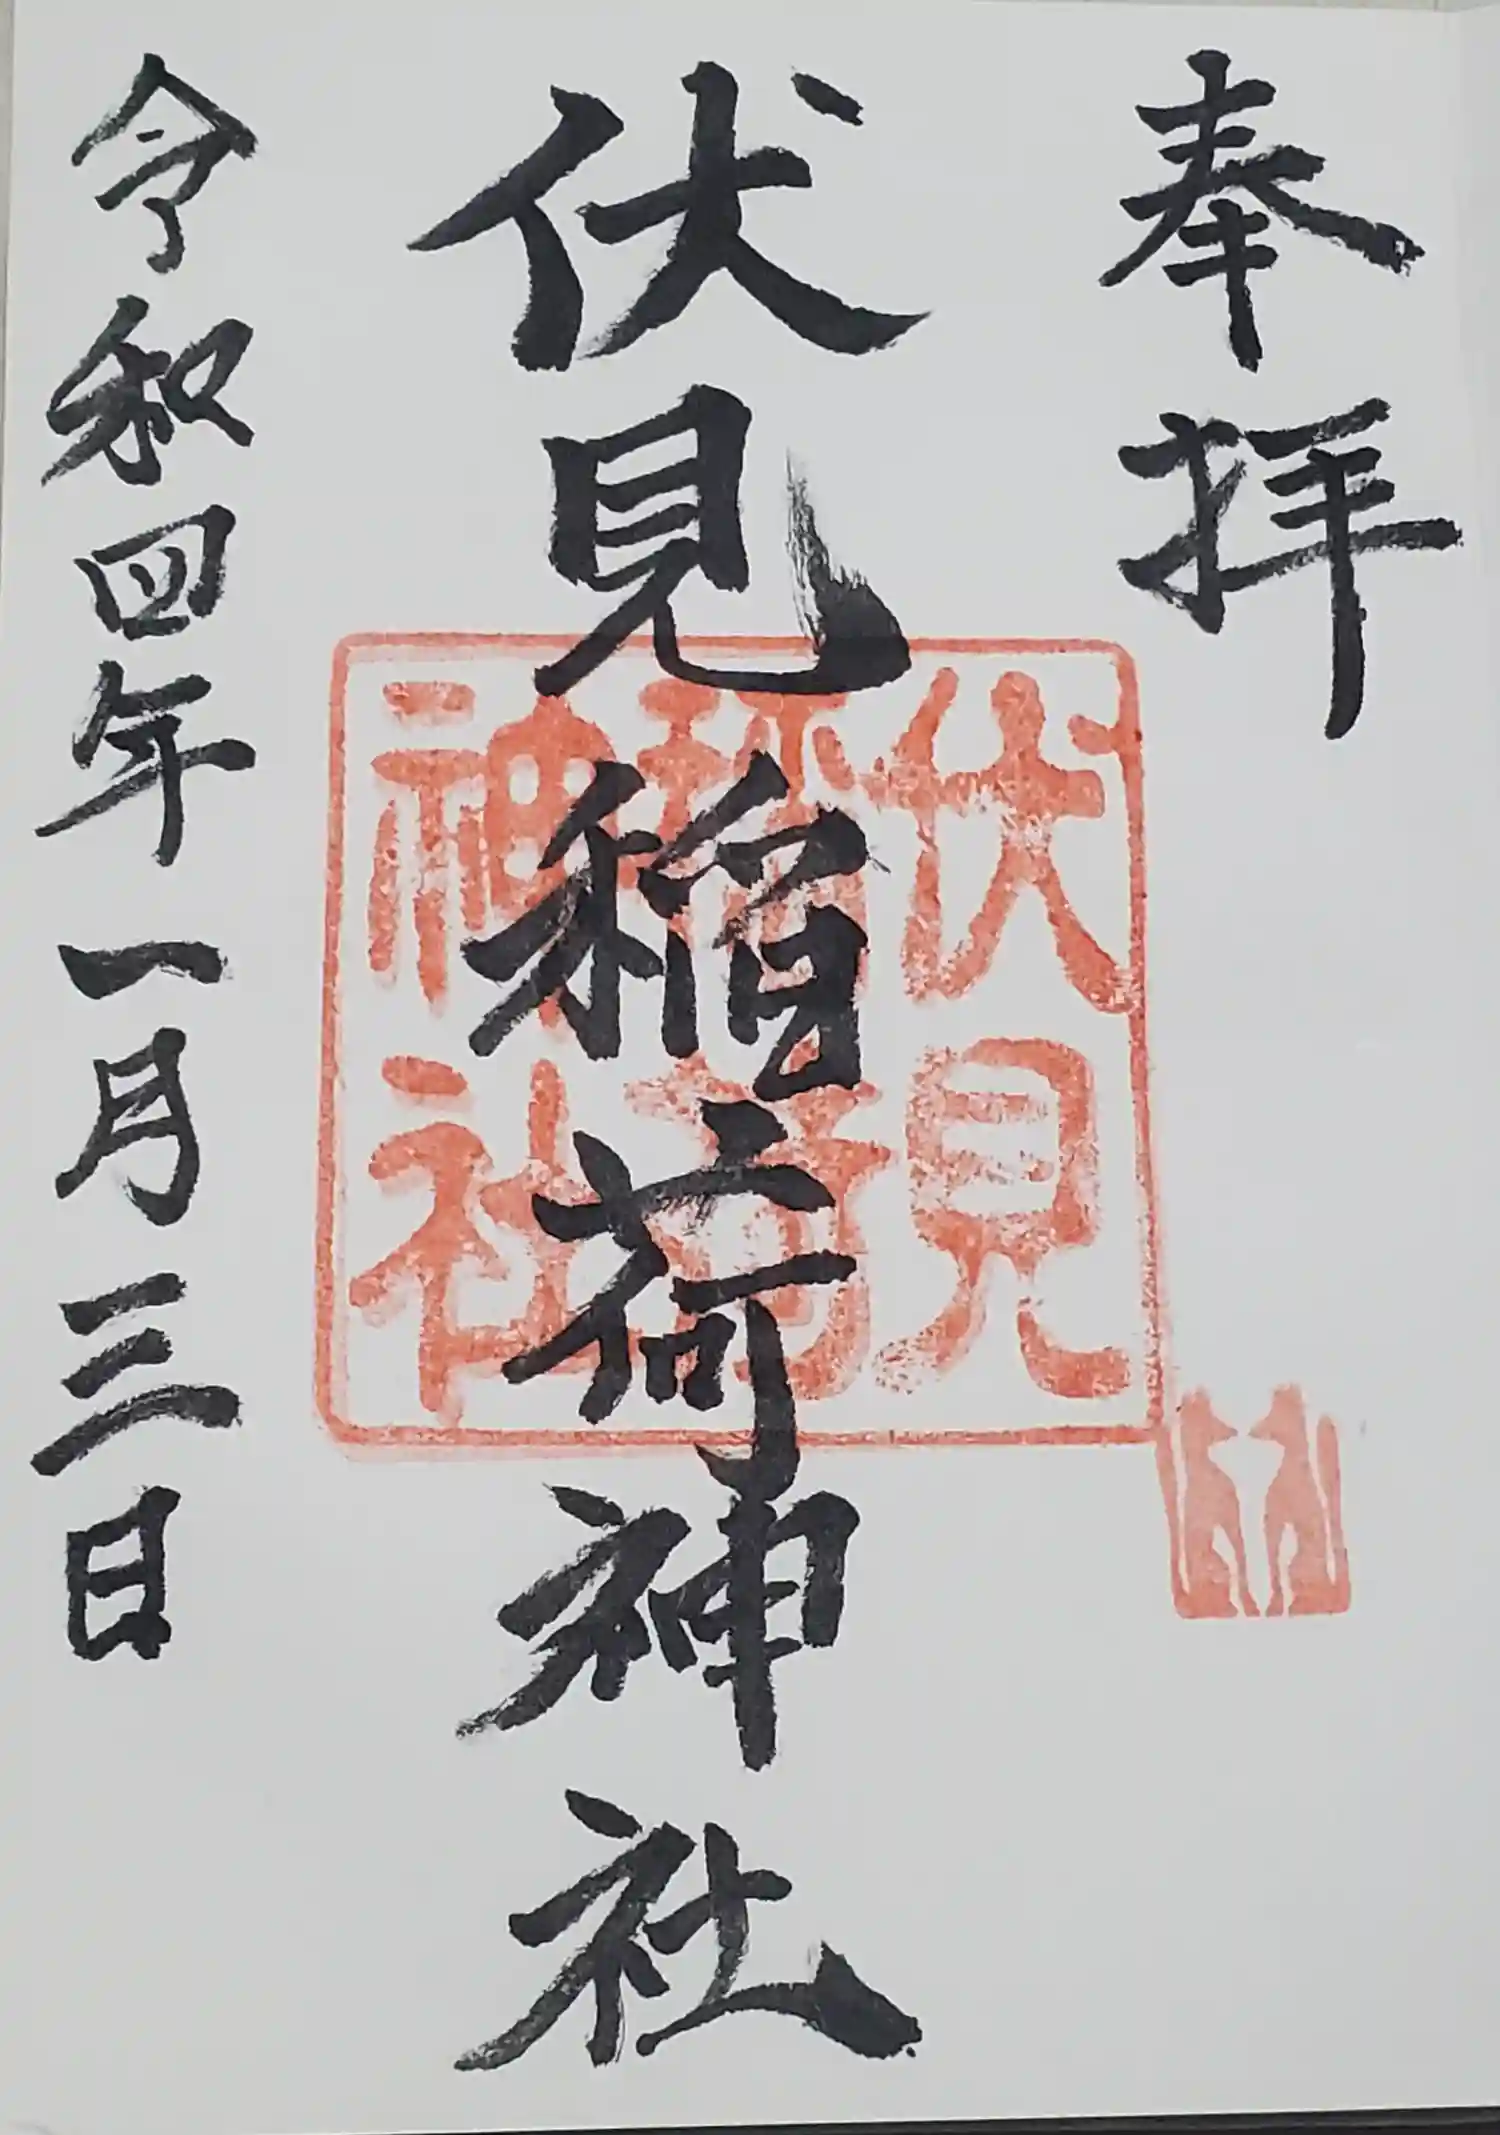 奉拝
伏見稲荷神社
伏見
稲荷
神社
令和四年一月三日